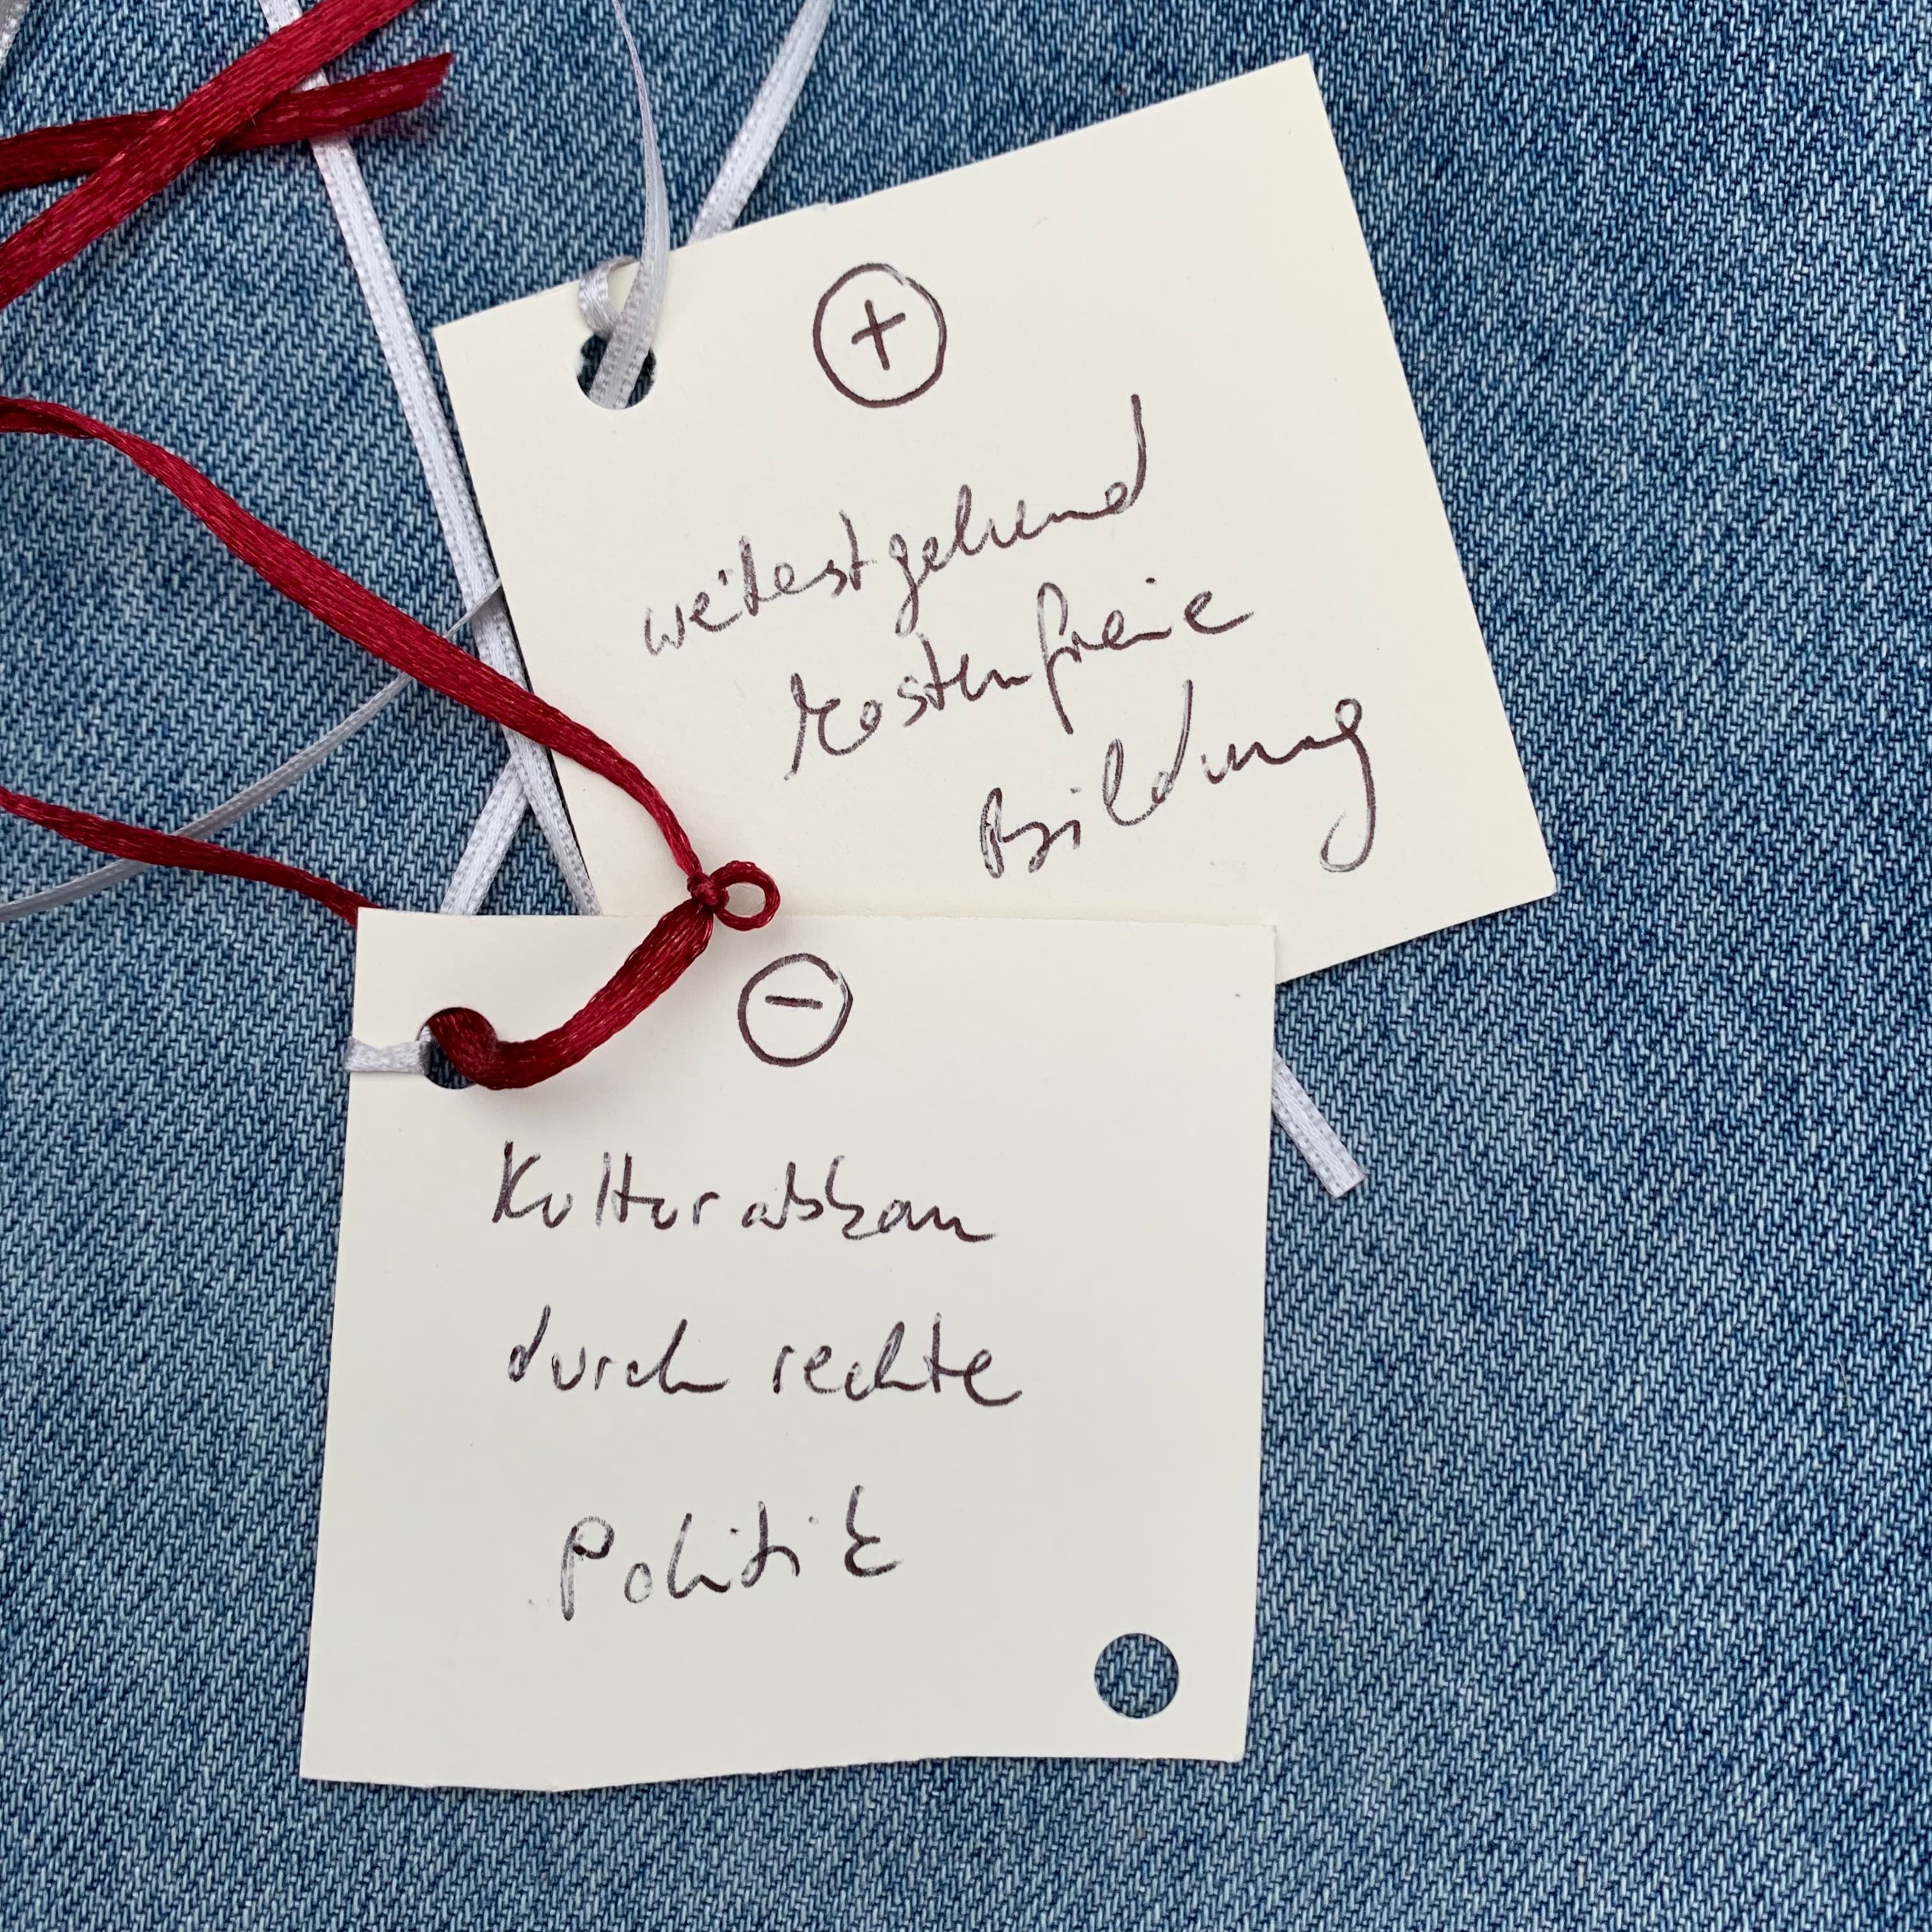 +
weitestgehend
kostenfreie
Bildung
-
Kulturabbau
durch rechte
Politik